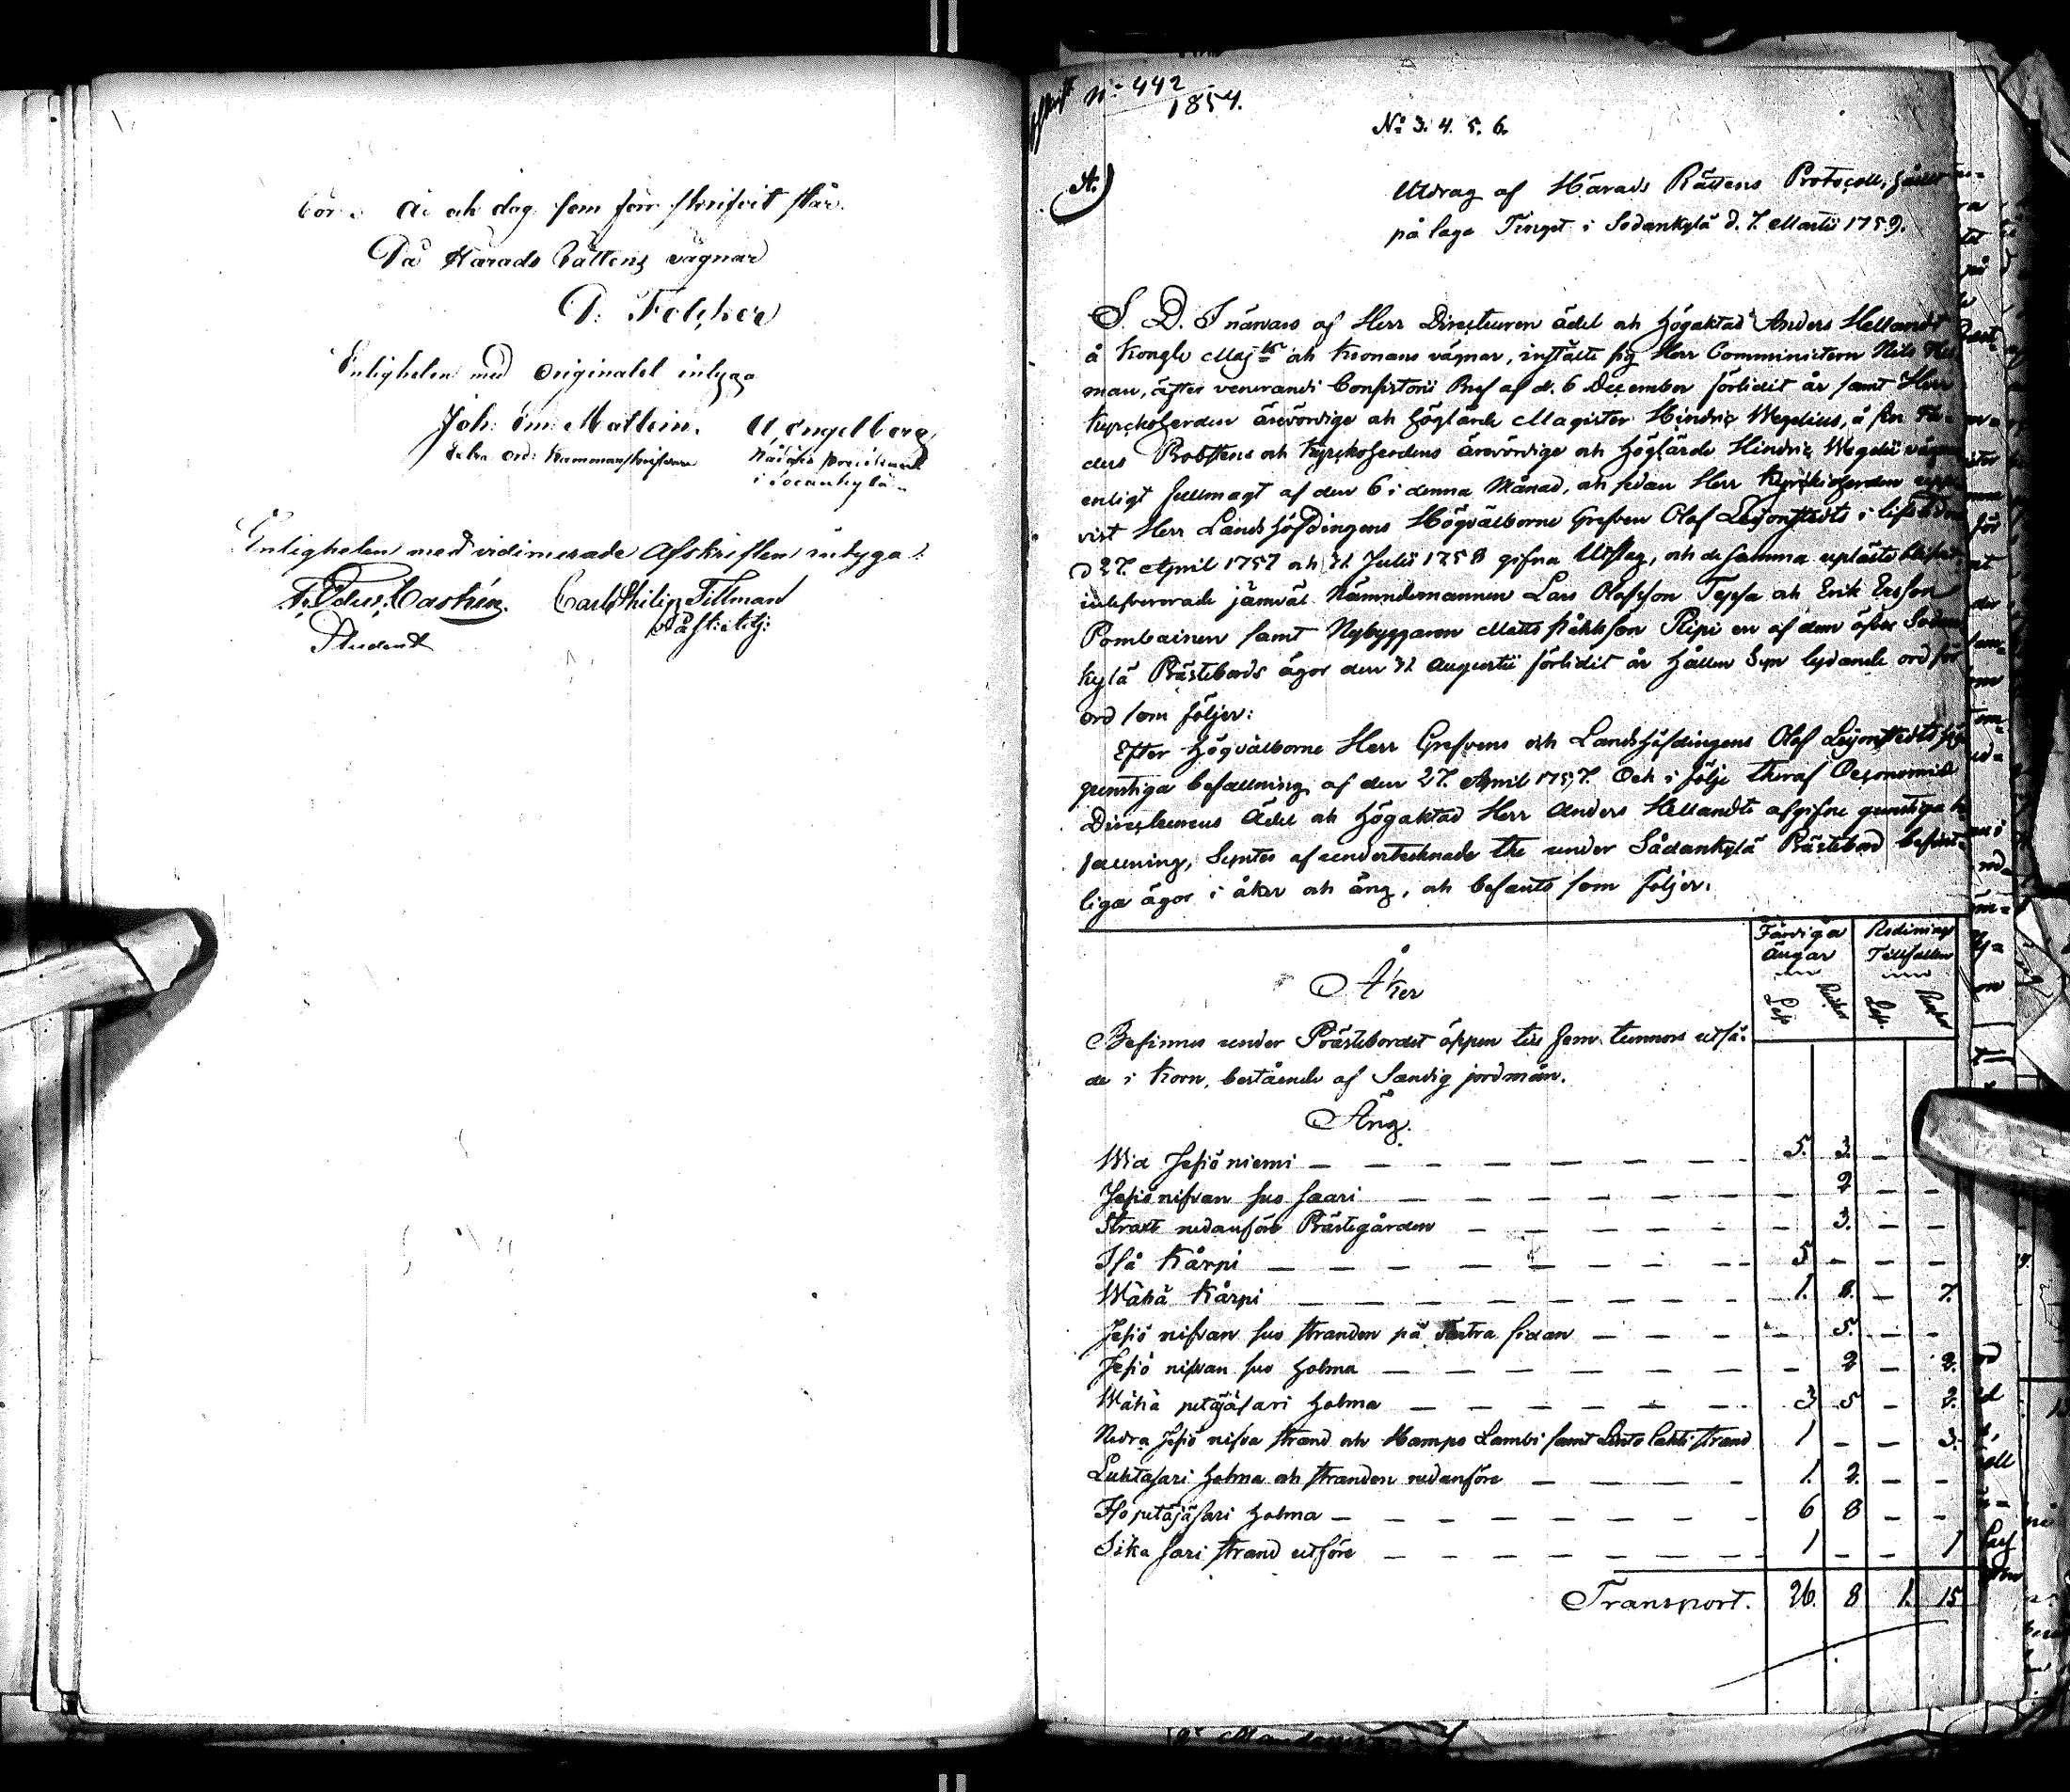 År och dag som förr skrifvit står.
På Härads Rättens vägnar
Enligheten med Originalet intyga
Joh: Em: Mathein. U, Engelberg,
Extra Ord: Kammarskrifvare
i Sodankylä
Enligheten med vidimerade Afskriften intyga:
Castrén. Carl Philip Tillman
Student
No: 442
1854.
No: 3. 4. 5. 6.
A.)
Utdrag af Härads Rättens Protocoll, hållet
på laga Tinget i Sodankylä d. 7. Martii 1759.
S. D. I närvaro af Herr Directeuren ädel och högaktad Anders Hellandt
å Kongl. Maj:ts och Kronans vägnar, instälte sig Herr Comministern Nils
man, äfter venerandi Consistorii Bref af d. 6 December förlidit år samt Herr
Kyrckoherden ärevördige och höglärde Magister Hindric Wegelius, å sin Fa-
ders Probstens och Kyrckoherdens ärevördige och Höglärde Hindric Wegelii vägnar
enligt fullmagt af den 6 i denna Månad, och sedan Herr Kyrckioherden upp-
vist Herr Lands höfdingens Högvälborne Grefven Olof Leijonstedts i lifstiden
d 27. April 1757 och 31 Julii 1758 gifna Utslag, och de samma upläste blifvit
inlefvererade jämväl Nämndemannen Lars Olofsson Teppa och Erik Ersson
Pombainen samt Nybyggaren Matts Riipi en af dem öfver Sodan
kylä Prästebords ägor den 31 Augustii förlidit år hållen Syn lydande ord för
ord som följer:
Efter högvälborne Herr Grefvens och Landshöfdingens Olof Leijonstedts
gunstiga befallning af den 27. April 1757. Och i följe theraf Oeconomie
Directeurens Ädel och högaktad Herr Anders Hellandts afgifne gunstiga be-
fallning, Syntes af undertecknade the under Sådankylä Prästebord befint-
liga ägor i åker och äng, och befants som följer:
Färdiga Ängar Rödnings Tillfällen
Åker
Befinnes under Prästebordet öppen till fem tunnors utsä-
de i Korn, bestående af Sandig jordmån.
Äng.
Wid Jesiöniemi — 5. 3. —
Jesiö nifvan suo saari — — 2 — —
Straxt nedanföre Prästegården — — 3. — —
Iså Kårpi — 5 — — —
Wähä Kårpi — 1. 8. — 7.
Jesiö nifvan suo stranden på sidan — — 5. — —
Jesiö nifvan suo holma — — 2 — 2.
Wähä petäjäsari holma — 3 5 — 2.
Nedra Jesiö nifva strand och Hampo Lambi samt Linto lahti strand 1 — — 3.
Luhtasari holma och stranden nedanföre — 1. 2. — —
Iso petäjäsari holma — 6 8 — —
Sika sari strand utföre — 1 — — 1
Transport. 26. 8 1. 15